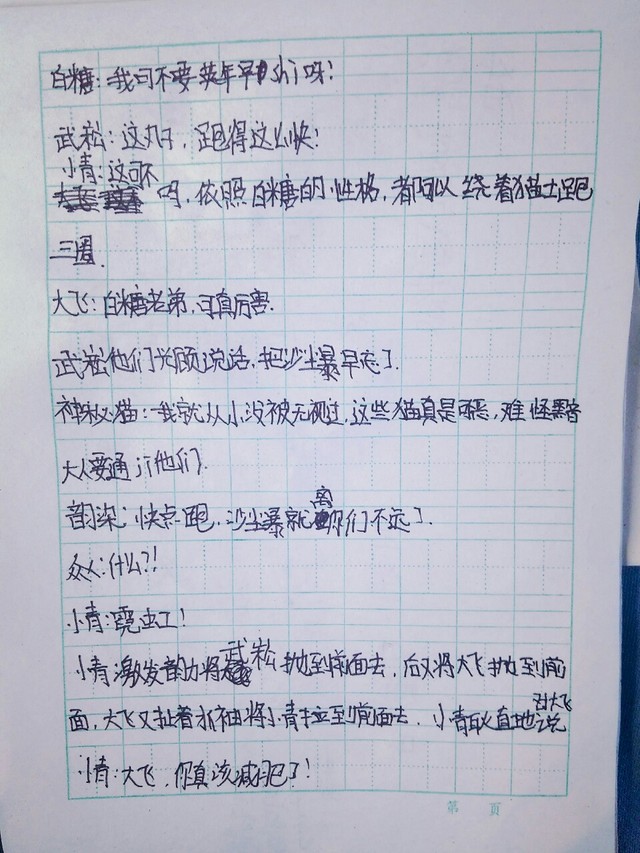 白糖：我可不要英年早shi呀！
武崧：这丸子，跑得这么快！
小青：这可不
吗，依照白糖的性格，都可以绕着猫土跑
三圈.
大飞：白糖老弟，可真厉害.
武崧他们光顾说话，把沙尘暴早忘了.
神秘猫：我就从小没被无视过，这些猫真是可恶，难怪黑音
大人要通ji他们.
韵染：快点跑，沙尘暴就离你们不远了.
众人：什么？！
小青：霓虹！
小青激发韵力将武崧抛到前面去，后又将大飞抛到前
面，大飞又扯着水袖将小青拉到前面去. 小青耿直地对大飞说
小青：大飞，你真该减肥了！
第 页